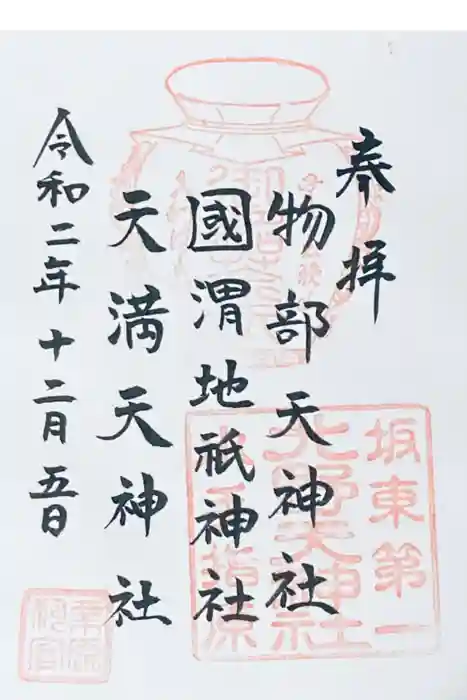 奉拝
物部天神社
國渭地祇神社
天満天神社
令和二年十二月五日
坂東第一
北野天神社